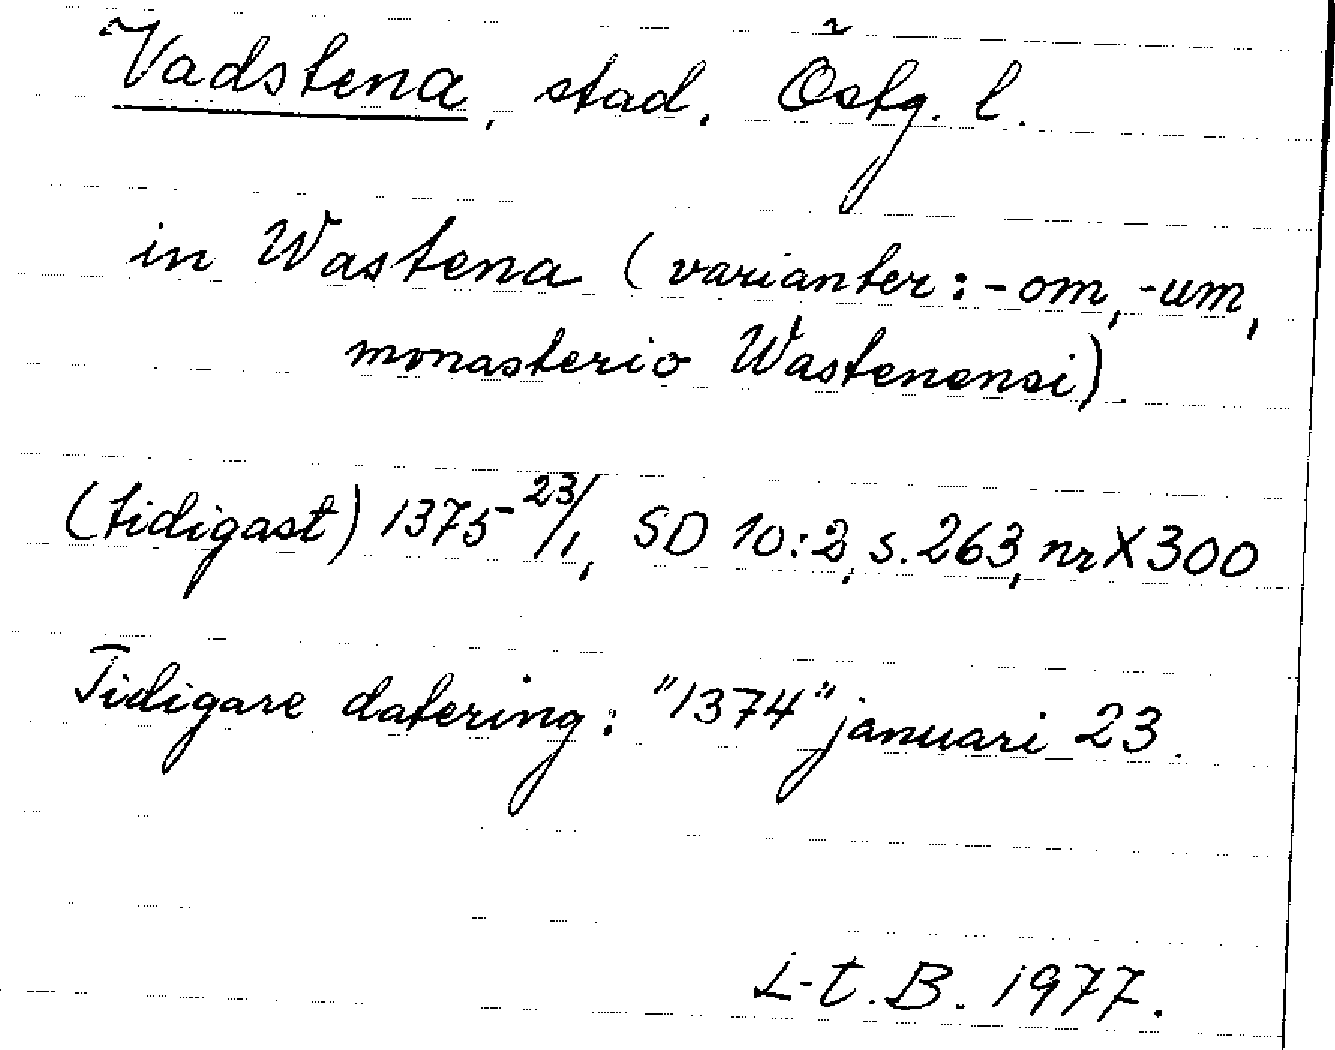 Vadstena, stad. Östg. l.
in Wastena (varianter: -om, -um,
monasterio Wastenensi).
(tidigast) 1375 - 23/1, SD 10:2, s. 263, nr X300
Tidigare datering: "1374" januari 23.
L-t. B. 1977.